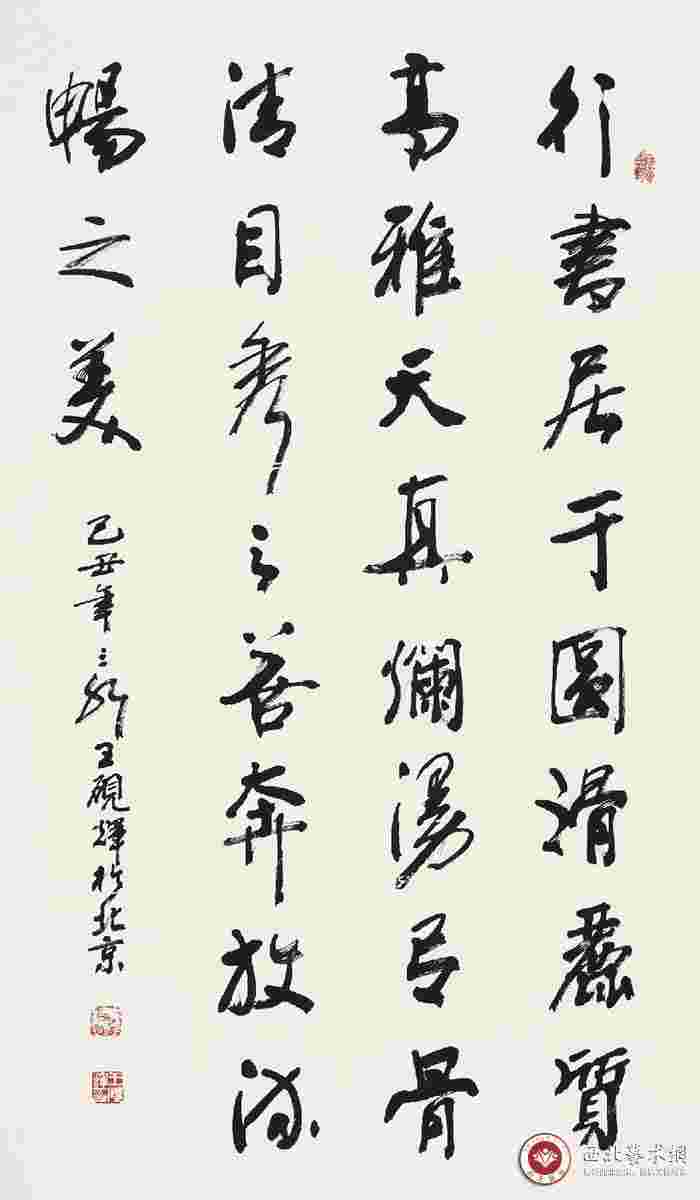 行書居于圓滑麗質
高雅天真爛漫弓骨
清目秀之善奔放流
暢之美
己丑年之秋王硯輝於北京
西北藝术網